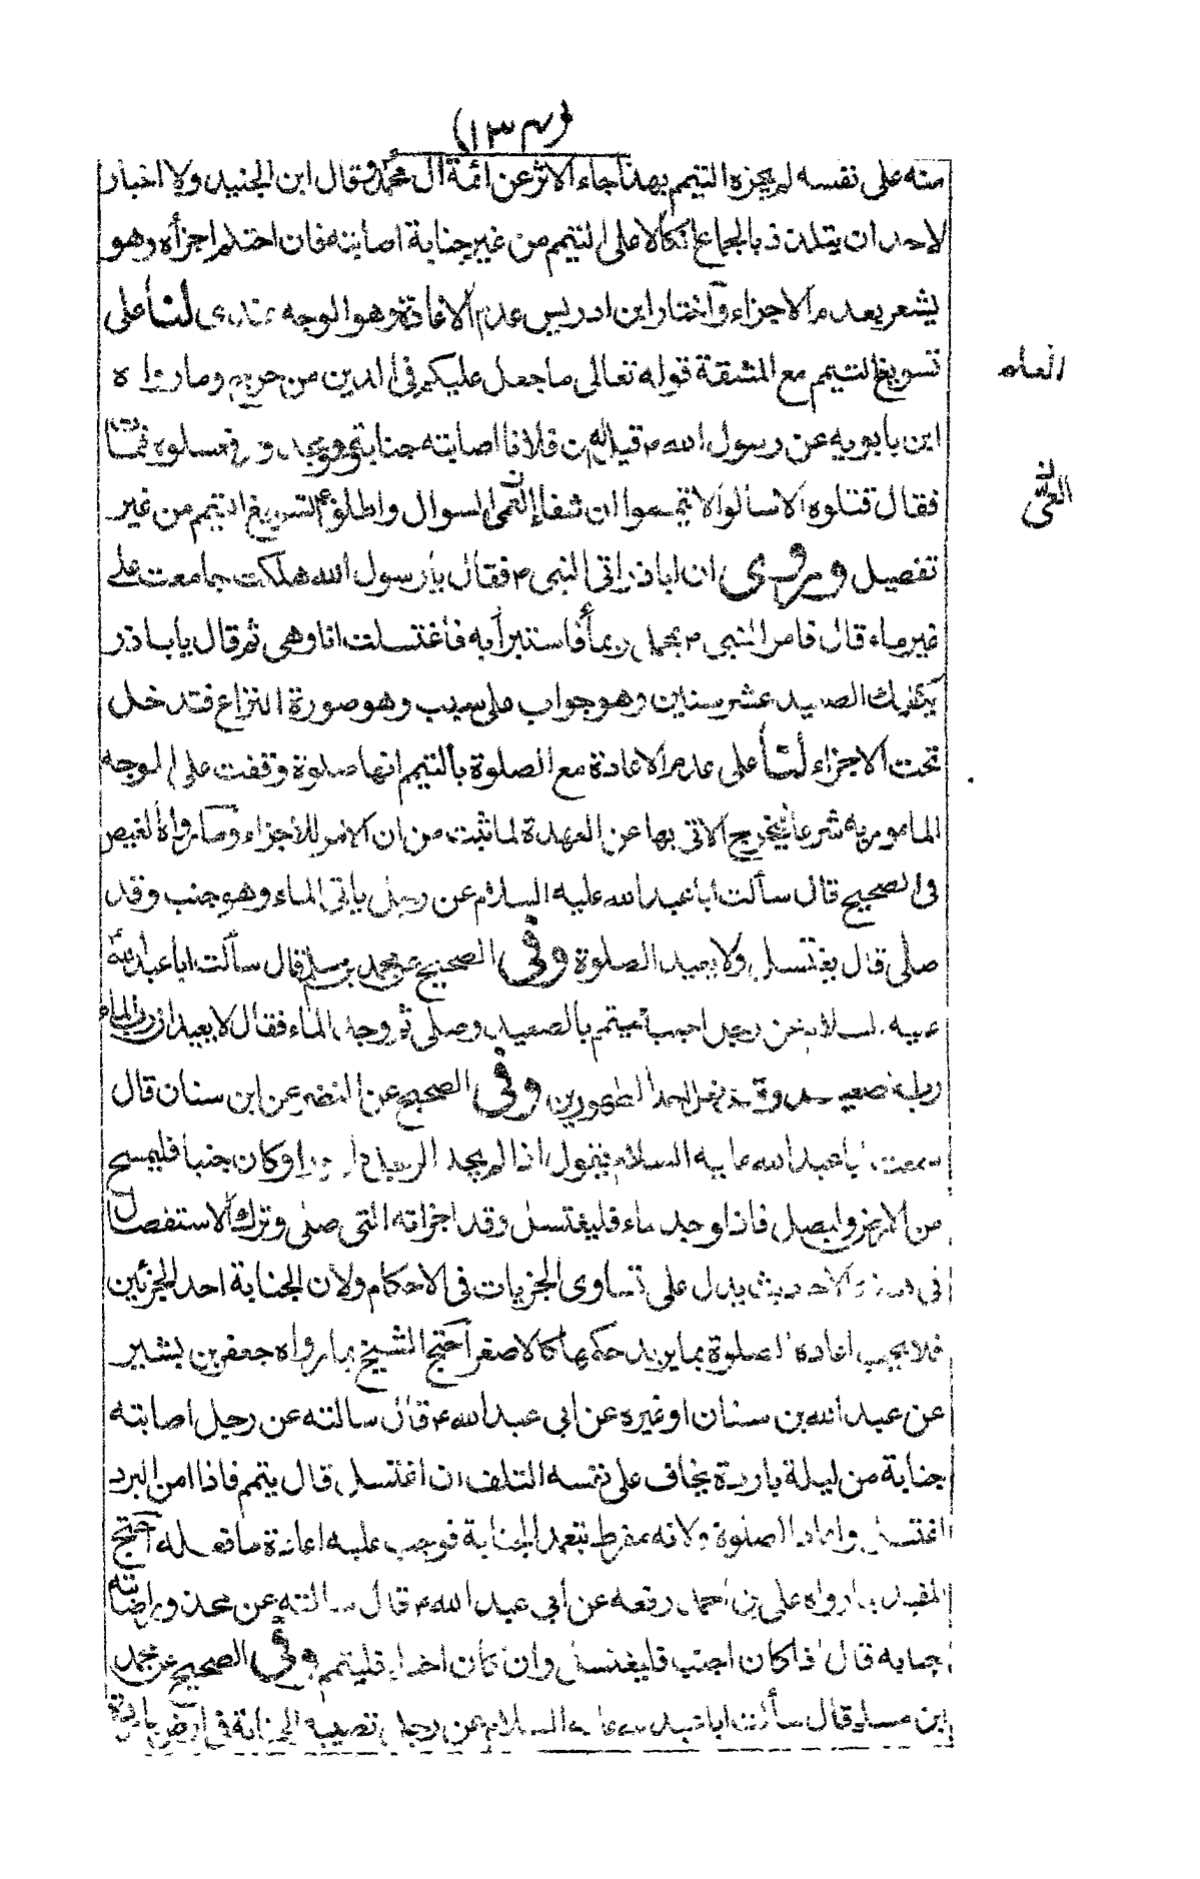 (١٣٤)
منه على نفسه لم يجزه التيمم بهذا جاء الاثر عن ائمة آل محمد وقال ابن الجنيد ولا اختار
لاحد ان يتلذذ بالجماع اتكالا على التيمم من غير جنابة اصابته فان احتلم اجزأه وهو
يشعر بعدم الاجزاء واختار ابن ادريس عدم الاعادة وهو الوجه عندى لنا على
تسويغ التيمم مع المشقة قوله تعالى ما جعل عليكم فى الدين من حرج وما رواه
ابن بابويه عن رسول الله م قيل له ان فلانا اصابته جنابة وهو مجدور فغسلوه فمات
فقال قتلوه الا سالوا الا تيمموا ان شفاء العى السوال واطلق التسويغ التيمم من غير
تفصيل وروى ان اباذر اتى النبى م فقال يا رسول الله هلكت جامعت على
غير ماء قال فامر النبى م بمحمل وبماء فاستترنا به فاغتسلت انا وهى ثم قال يا باذر
يكفيك الصعيد عشر سنين وهو جواب على سبب وهو صورة النزاع فتدخل
تحت الاجزاء لنا على عدم الاعادة مع الصلوة بالتيمم انها صلوة وقعت على الوجه
المامور به شرعا فيخرج الاتى بها عن العهدة لما ثبت من ان الامر للاجزاء وما رواه العيص
فى الصحيح قال سألت ابا عبدالله عليه السلام عن رجل ياتى الماء وهو جنب وقد
صلى قال يغتسل ولا يعيد الصلوة وفى الصحيح عن محمد بن مسلم قال سألت ابا عبدالله
عليه السلام عن رجل اجنب فتيمم بالصعيد وصلى ثم وجد الماء فقال لا يعيد ان رب الماء
رب الصعيد وقد فعل احد الطهورين وفى الصحيح عن النضر عن ابن سنان قال
سمعت ابا عبدالله عليه السلام يقول اذا لم يجد الرجل طهورا وكان جنبا فليمسح
من الارض وليصل فاذا وجد ماء فليغتسل وقد اجزاته التى صلى وترك الاستفصال
فى هذه الاحاديث يدل على تساوى الجزيات فى الاحكام ولان الجنابة احد الجزئين
فلا يجب اعادة الصلوة بما يريد حكمها كالاصغر احتج الشيخ بما رواه جعفر بن بشير
عن عبدالله بن سنان او غيره عن ابى عبدالله م قال سالته عن رجل اصابته
جنابة من ليلة باردة يخاف على نفسه التلف ان اغتسل قال يتمم فاذا امن البرد
اغتسل واعاد الصلوة ولانه مفرط بتعمد الجنابة فوجب عليه اعادة ما فعله احتج
المفيد بما رواه على بن احمد رفعه عن ابى عبدالله م قال سالته عن مجدور اصابته
جنابه قال اذا كان اجنب فليغتسل وان كان احتلم فليتمم وفى الصحيح عن محمد
ابن مسلم قال سألت ابا عبدالله عليه السلام عن رجل تصيبه الجنابة فى ارض باردة